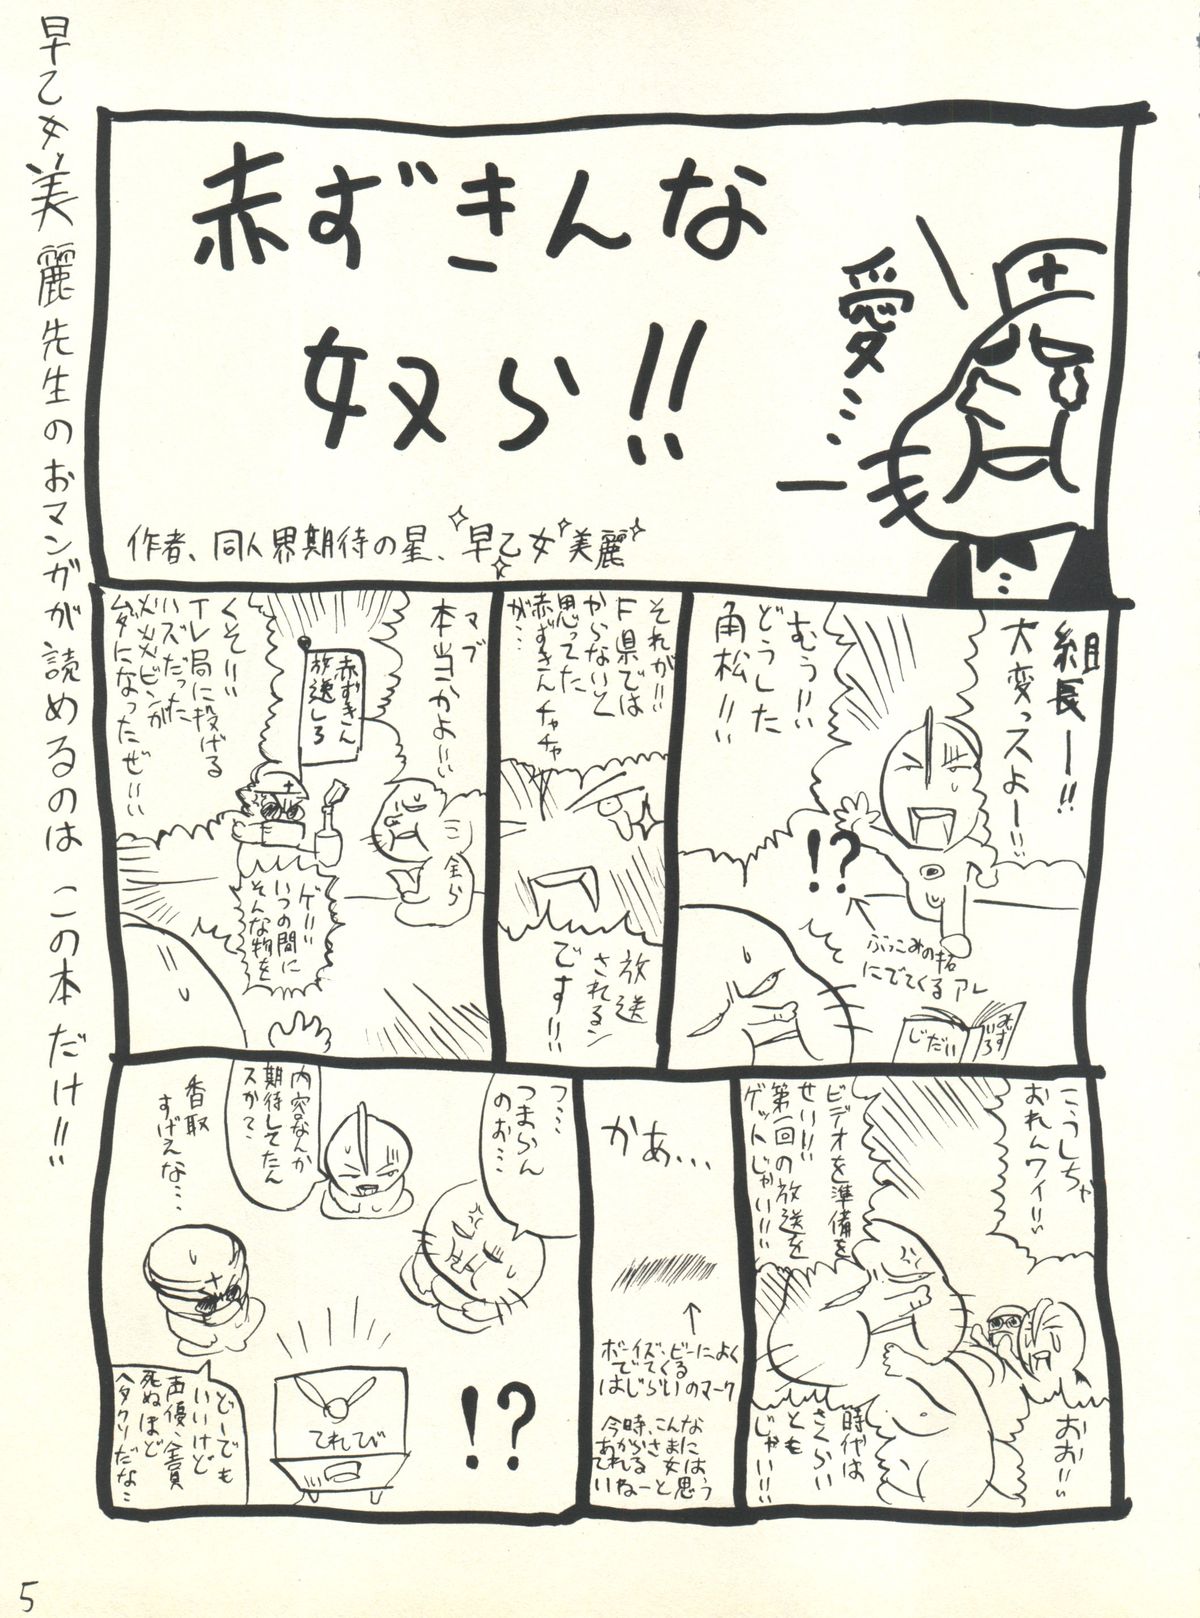 早乙女美麗先生のおマンガが読めるのはこの本だけ!!
赤ずきんな
奴ら!!
愛…
作者、同人界期待の星、早乙女美麗
組長ー!!
大変っスよー!!
むう!!
どうした
角松!!
!?
ぶっこみの拓
にでてくるアレ
じだい
むすいろ
それが!!
F県では
やらないと
思ってた
赤ずきんチャチャ
が…
放送
されるン
です!!
マブ
本当かよ!!
赤ずきん
放送しろ
くそ!!
TV局に投げる
はずだった
ビンが
ムダになったぜ!!
ゲ!!
いつの間に
そんな物を
こうしちゃ
おれんワイ!!
ビデオを準備を
せい!!!
第一回の放送を
ゲットじゃい!!!
おお!!
時代は
さくらい
とも
じゃい!!
かあ…
↑
ボーイズビーによく
でてくる
はじらいのマーク
今時、こんな
あからさまに
てれる女は
いねーと思う
フ…
つまらん
のお…
内容なんか
期待してたん
スか?
香取
すげえな…
てれてび
!?
どーでも
いいけど
声優、全員
死ぬほど
ヘタクソだな…
5